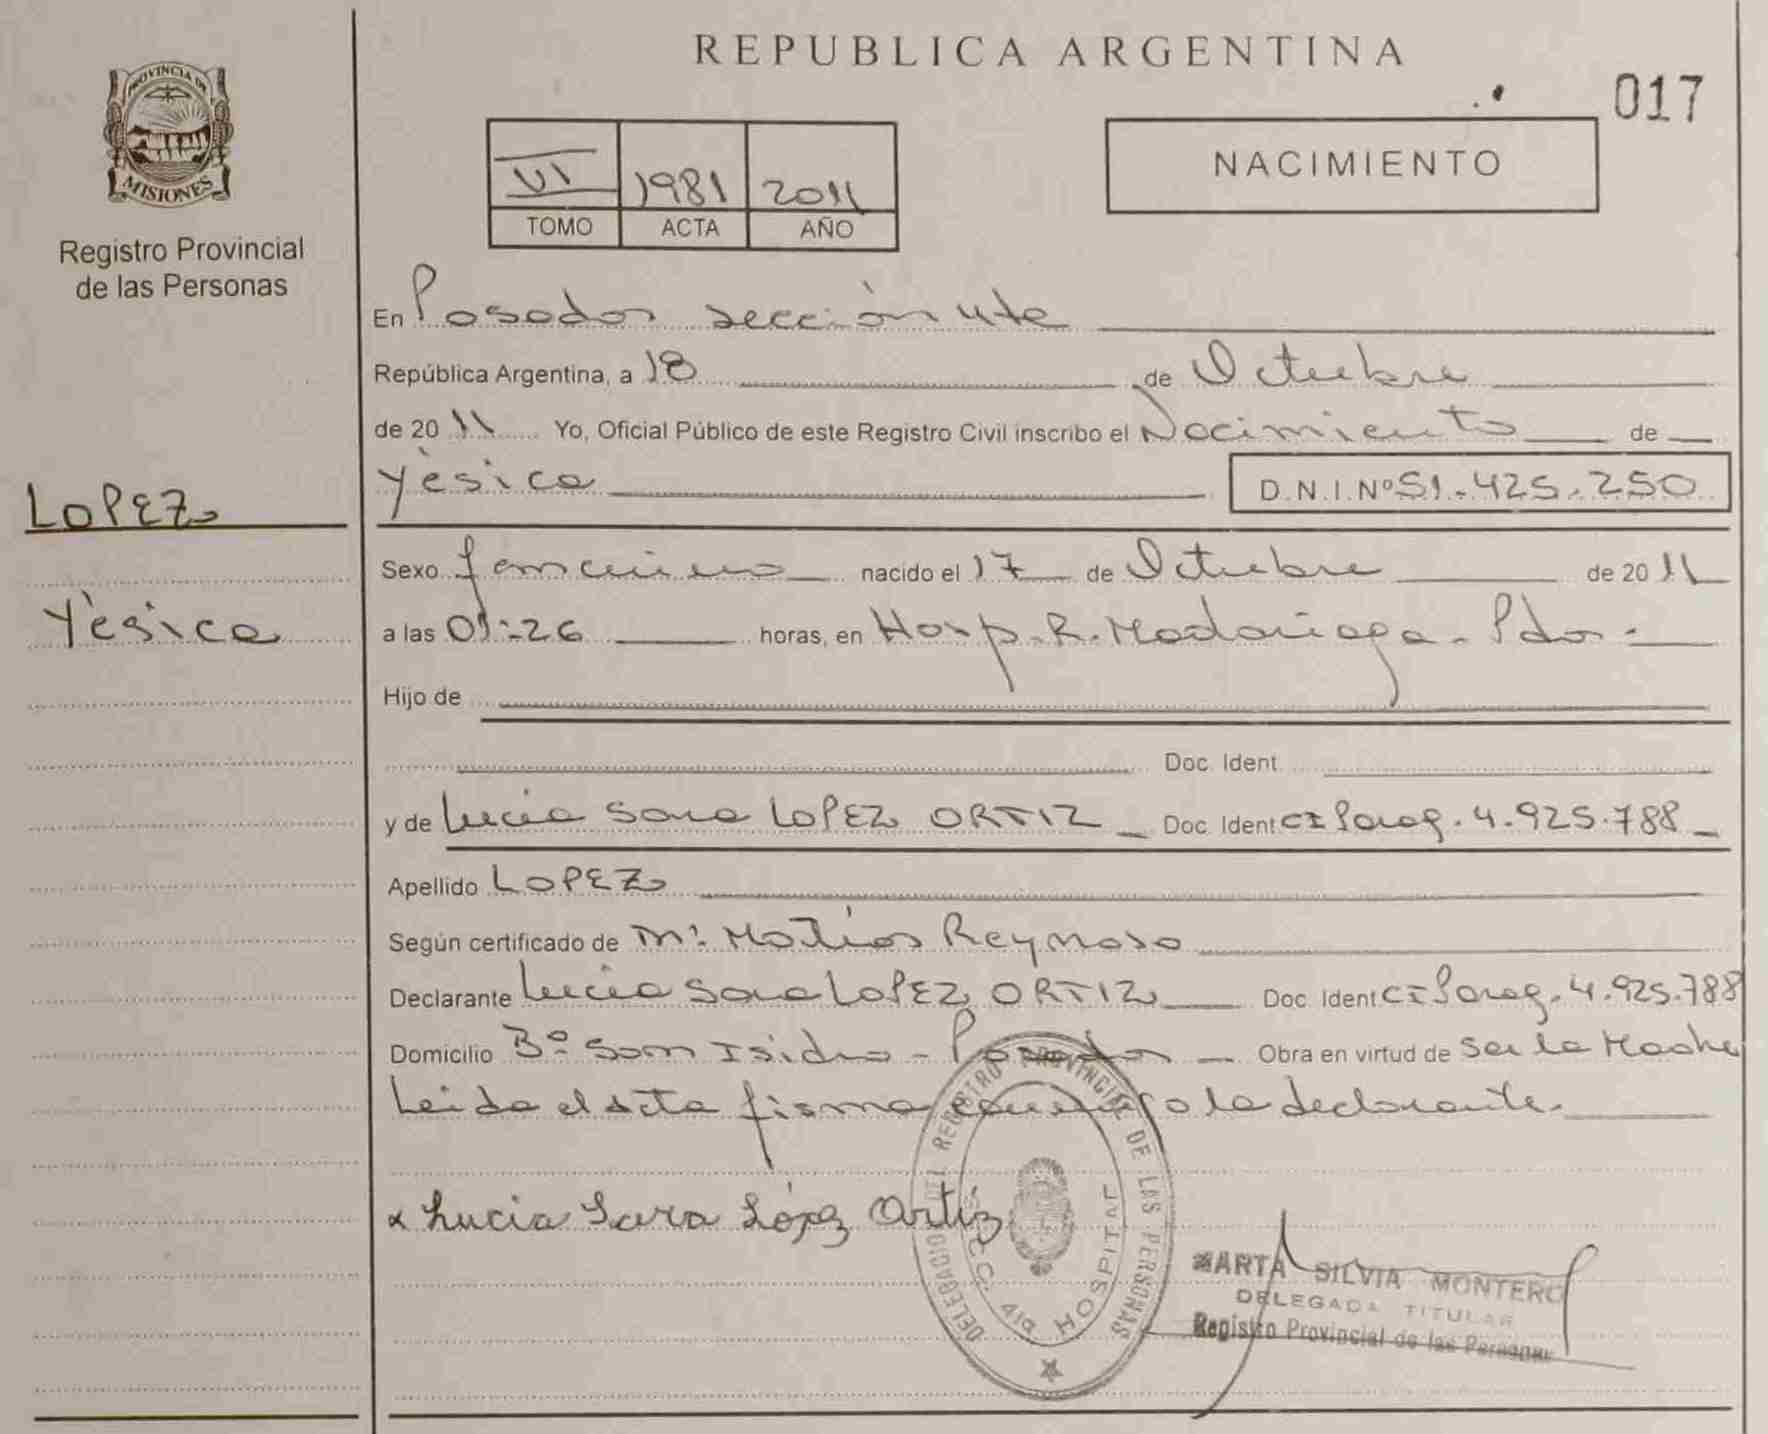 REPUBLICA ARGENTINA
017
PROVINCIA DE
MISIONES
Registro Provincial
de las Personas
VI 1981 2011
TOMO ACTA AÑO
NACIMIENTO
En Posadas sección 4ta
República Argentina, a 18 de Octubre
de 2011 Yo, Oficial Público de este Registro Civil inscribo el Nacimiento de
Yèsica D.N.I.Nº 51.425.250
LOPEZ
Yèsica
Sexo femenino nacido el 17 de Octubre de 2011
a las 01:26 horas, en Hosp. R. Madariaga - Pdas.
Hijo de
Doc. Ident.
y de Lucia Sara LOPEZ ORTIZ Doc. Ident CI Parag. 4.925.788
Apellido LOPEZ
Según certificado de Matías Reynoso
Declarante Lucia Sara LOPEZ ORTIZ Doc. Ident CI Parag. 4.925.788
Domicilio Bº San Isidro - Posadas Obra en virtud de Ser la Madre
Leida el Acta firma conmigo la declarante.
x Lucia Sara López Ortiz
DELEGACION DEL REGISTRO PROVINCIAL DE LAS PERSONAS
SECC. 4ta HOSPITAL
MARTA SILVIA MONTERO
DELEGADA TITULAR
Registro Provincial de las Personas